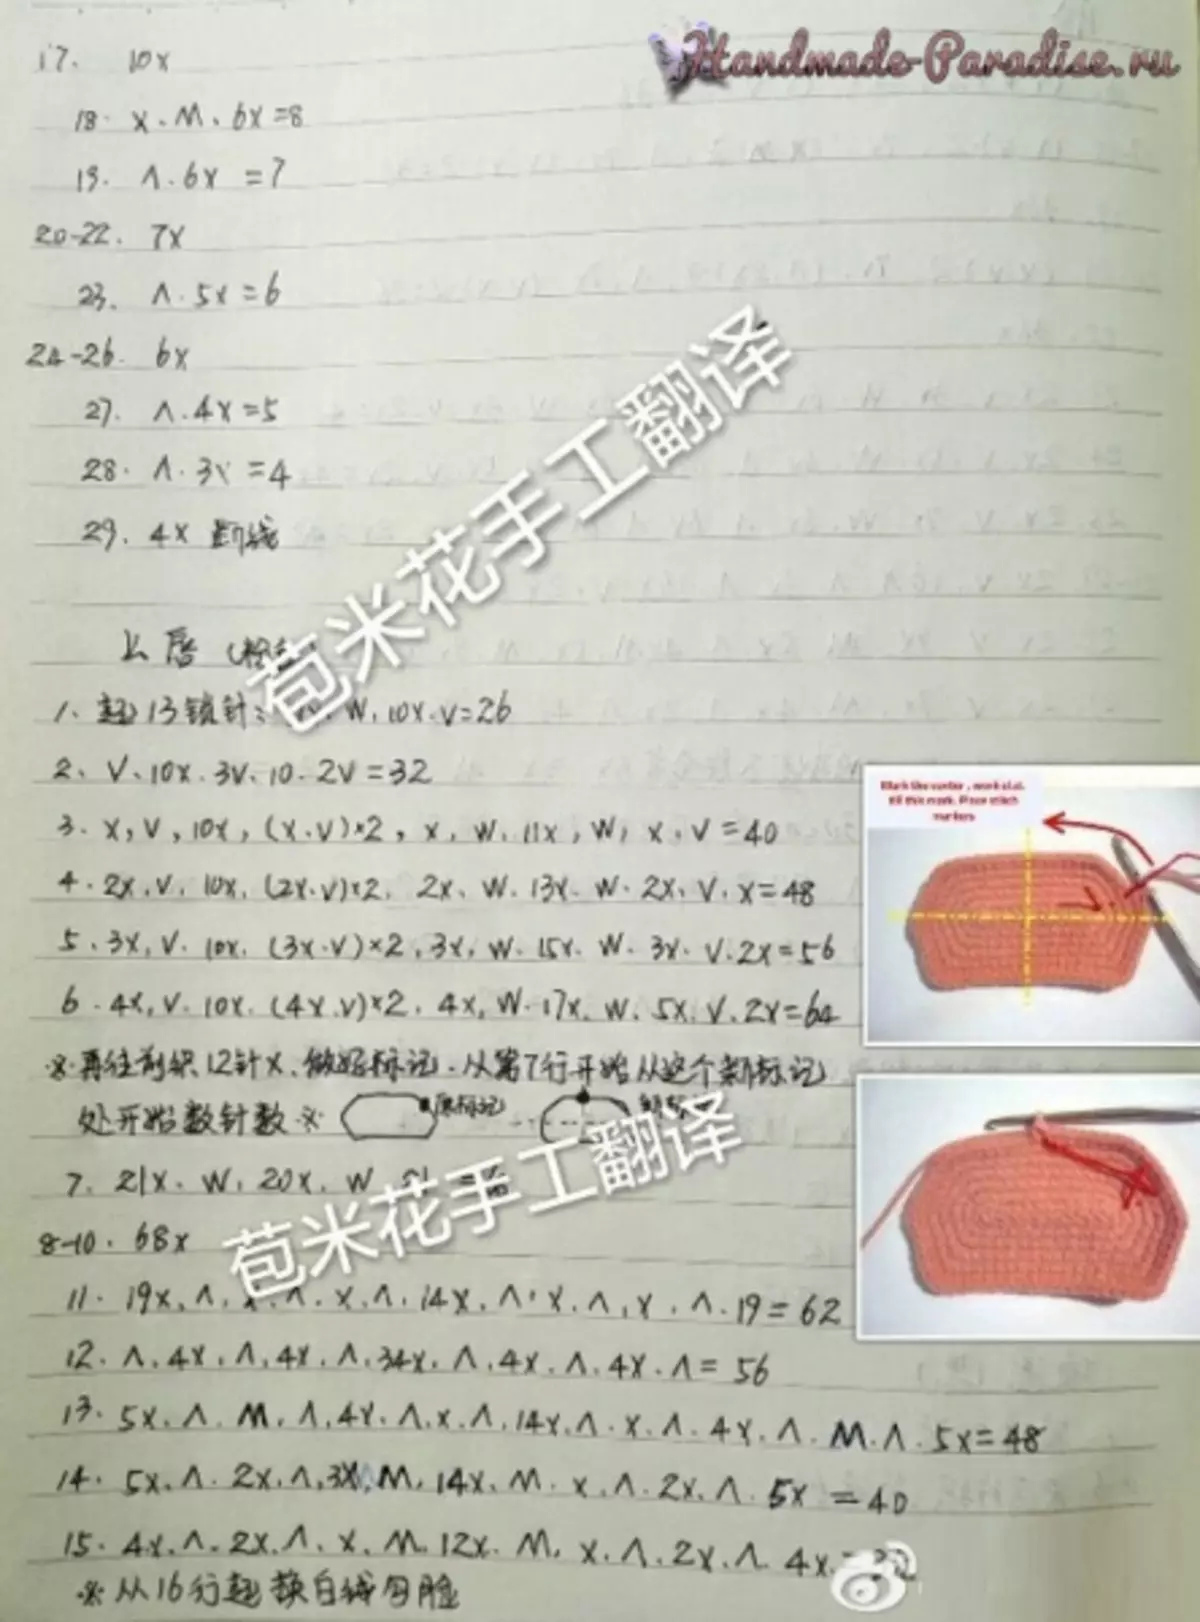 Handmade-Paradise.ru
17. 10x
18. x. M. 6x=8
19. Λ. 6x =7
20-22. 7x
23. Λ. 5x=6
24-26. 6x
27. Λ. 4x=5
28. Λ. 3x =4
29. 4x 断线
苞米花手工翻译
上唇
1、起13锁针: W. 10x. V=26
2、V. 10x. 3V. 10. 2V=32
3. x, V, 10x, (x.V)×2, x. W. 11x, W, x, V=40
4. 2x. V. 10x. (2x.V)×2. 2x. W. 13x. W. 2x. V. x=48
5. 3x, V. 10x. (3x.V)×2, 3x, W. 15x. W. 3x. V. 2x=56
6. 4x, V. 10x. (4x.V)×2. 4x, W. 17x. W. 5x. V. 2x=64
※再往前织12针x、做好标记.从第7行开始从这个新标记
处开始数针数※ 原标记
Mark the center, work s.l.st. till this mark. Place stitch markers
7. 21x. W. 20x. W
苞米花手工翻译
8-10. 68x
11. 19x. Λ. x. Λ. x. Λ. 14x. Λ. x. Λ. x. Λ. 19=62
12. Λ. 4x. Λ. 4x. Λ. 34x. Λ. 4x. Λ. 4x. Λ=56
13. 5x. Λ. M. Λ. 4x. Λ. x. Λ. 14x. Λ. x. Λ. 4x. Λ. M. Λ. 5x=48
14. 5x. Λ. 2x. Λ. 3x. M. 14x. M. x. Λ. 2x. Λ. 5x =40
15. 4x. Λ. 2x. Λ. x. M. 12x. M. x. Λ. 2x. Λ. 4x
※从16行起换白线勾脸